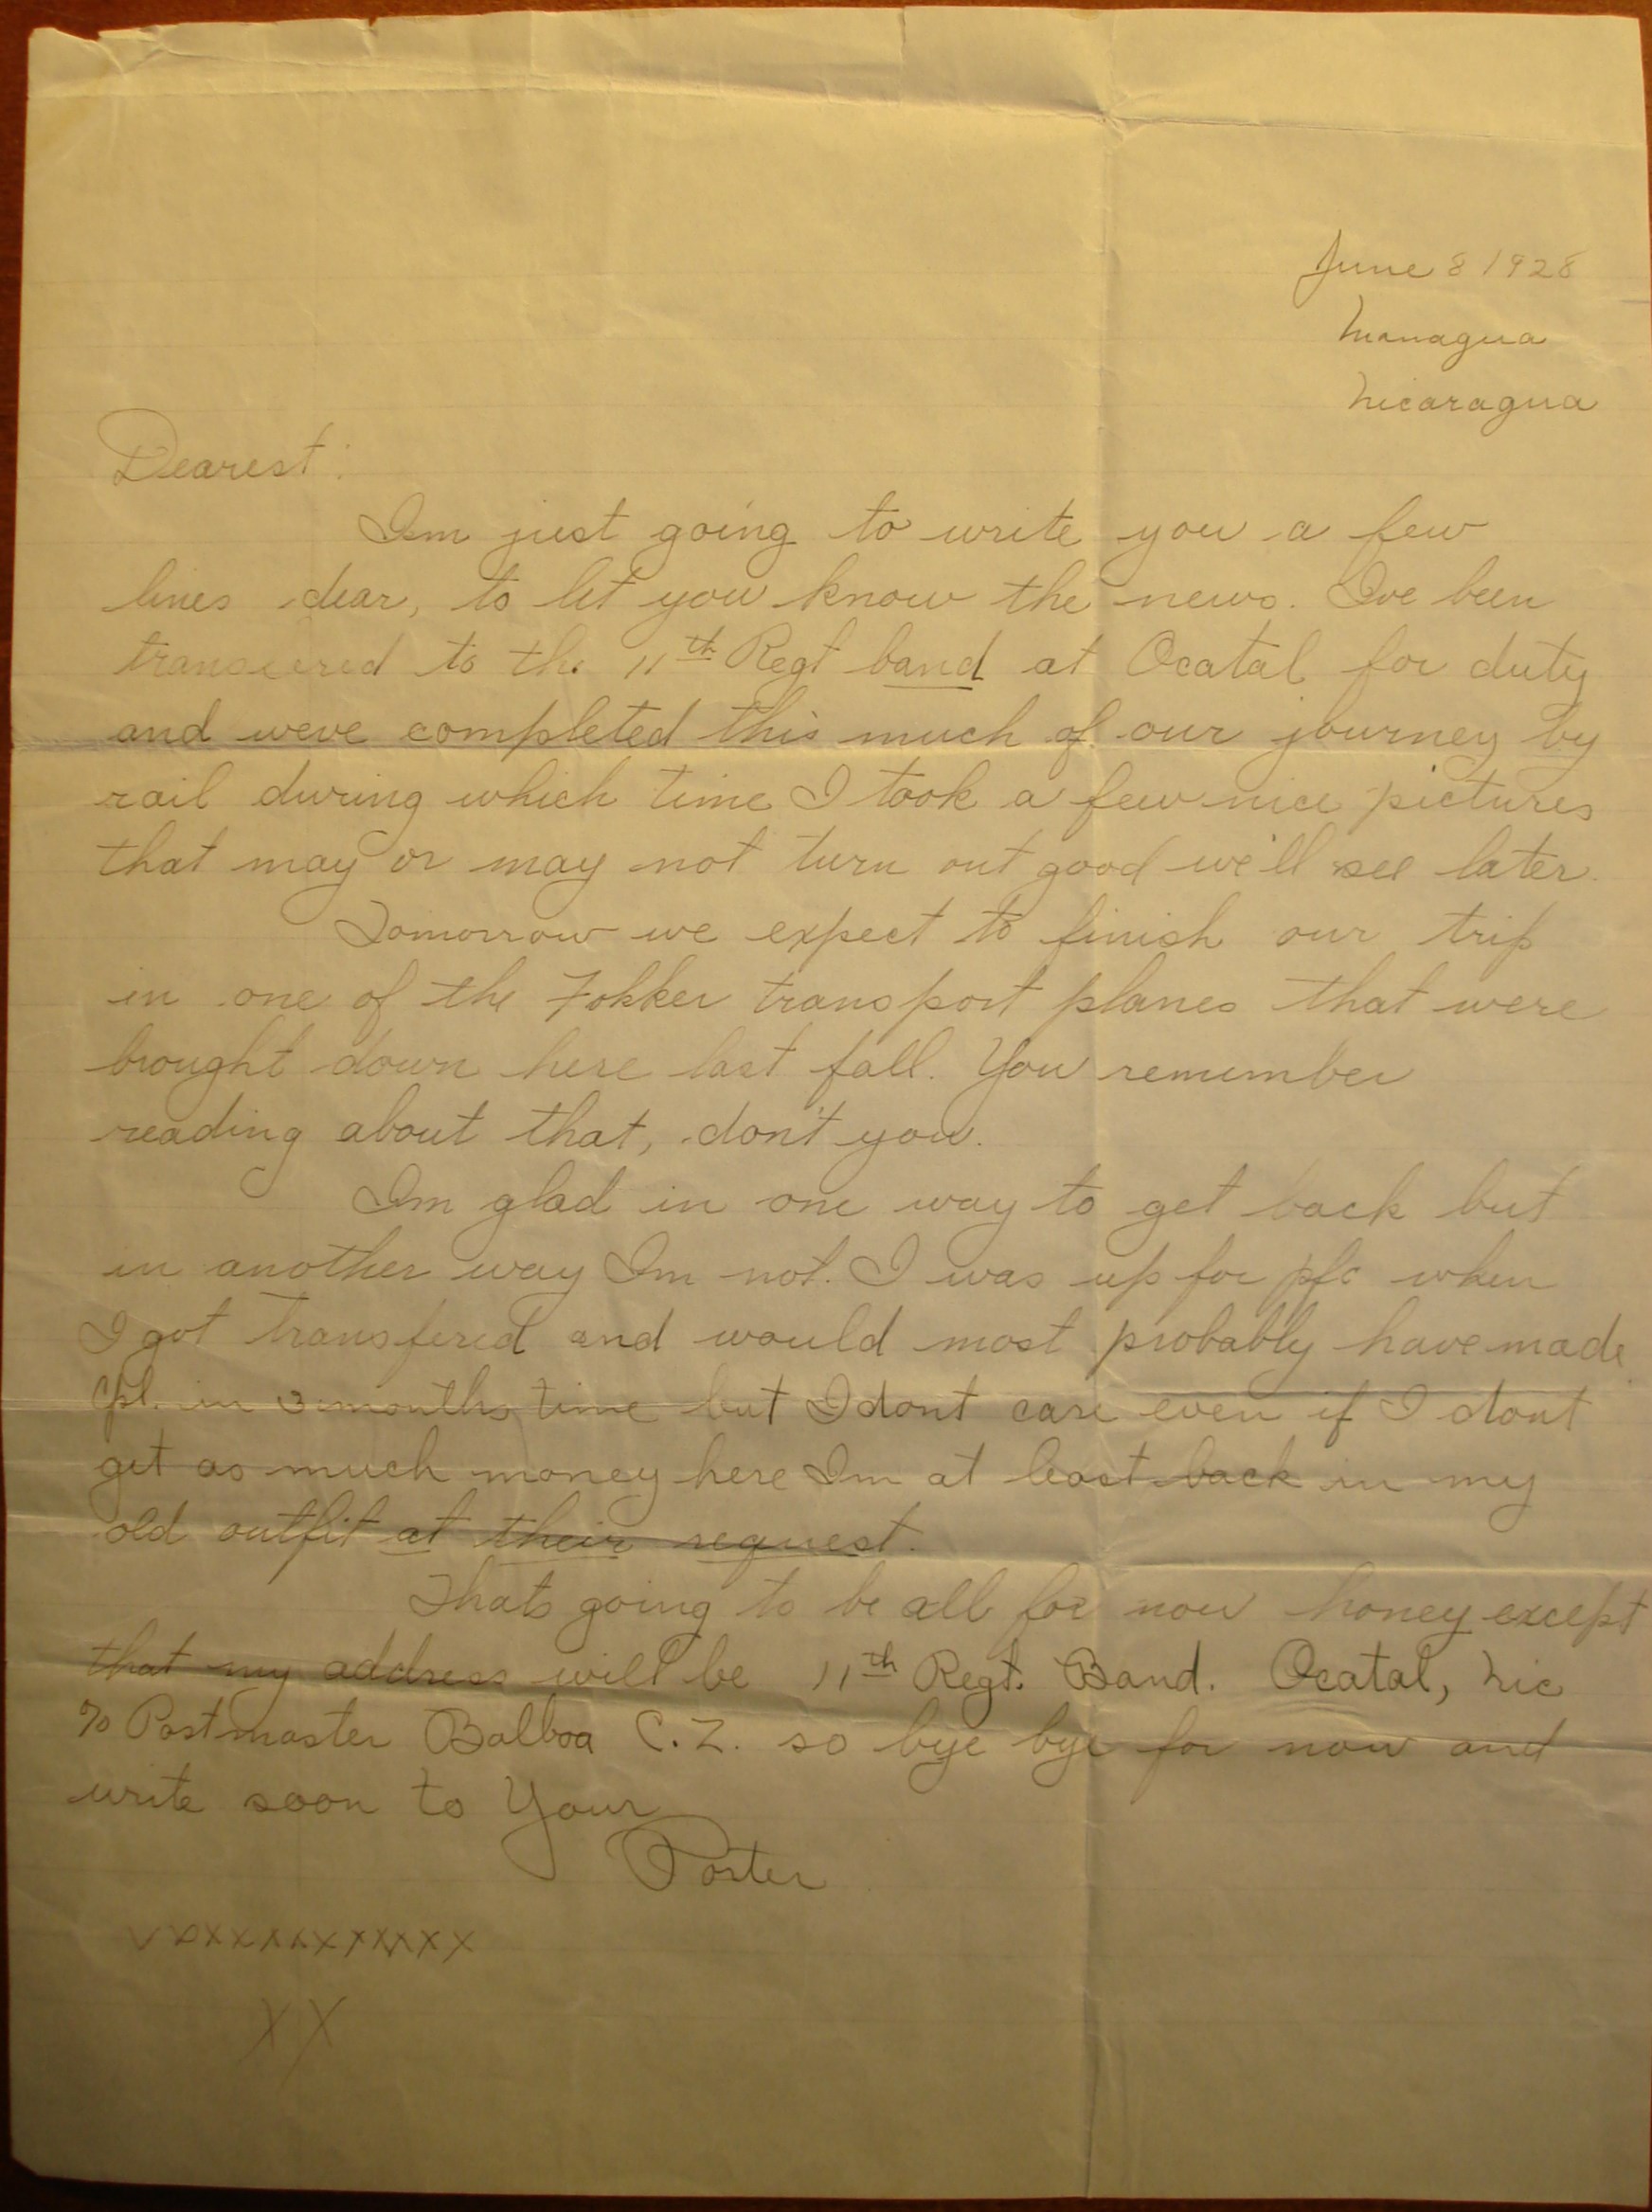 June 8 1928
Managua
Nicaragua
Dearest:
Im just going to write you a few
lines dear, to let you know the news. Ive been
transfered to the 11th Regt band at Ocatal for duty
and weve completed this much of our journey by
rail during which time I took a few nice pictures
that may or may not turn out good we'll see later.
Tomorrow we expect to finish our trip
in one of the Fokker transport planes that were
brought down here last fall. You remember
reading about that, don't you.
Im glad in one way to get back but
in another way Im not. I was up for pfc when
I got transfered and would most probably have made
Cpl. in 3 months time but I dont care even if I dont
get as much money here Im at least back in my
old outfit at their request.
Thats going to be all for now honey except
that my address will be 11th Regt. Band. Ocatal, Nic
℅ Postmaster Balboa C.Z. so bye bye for now and
write soon to Your
Porter
xxxxxxxxxxxxx
XX